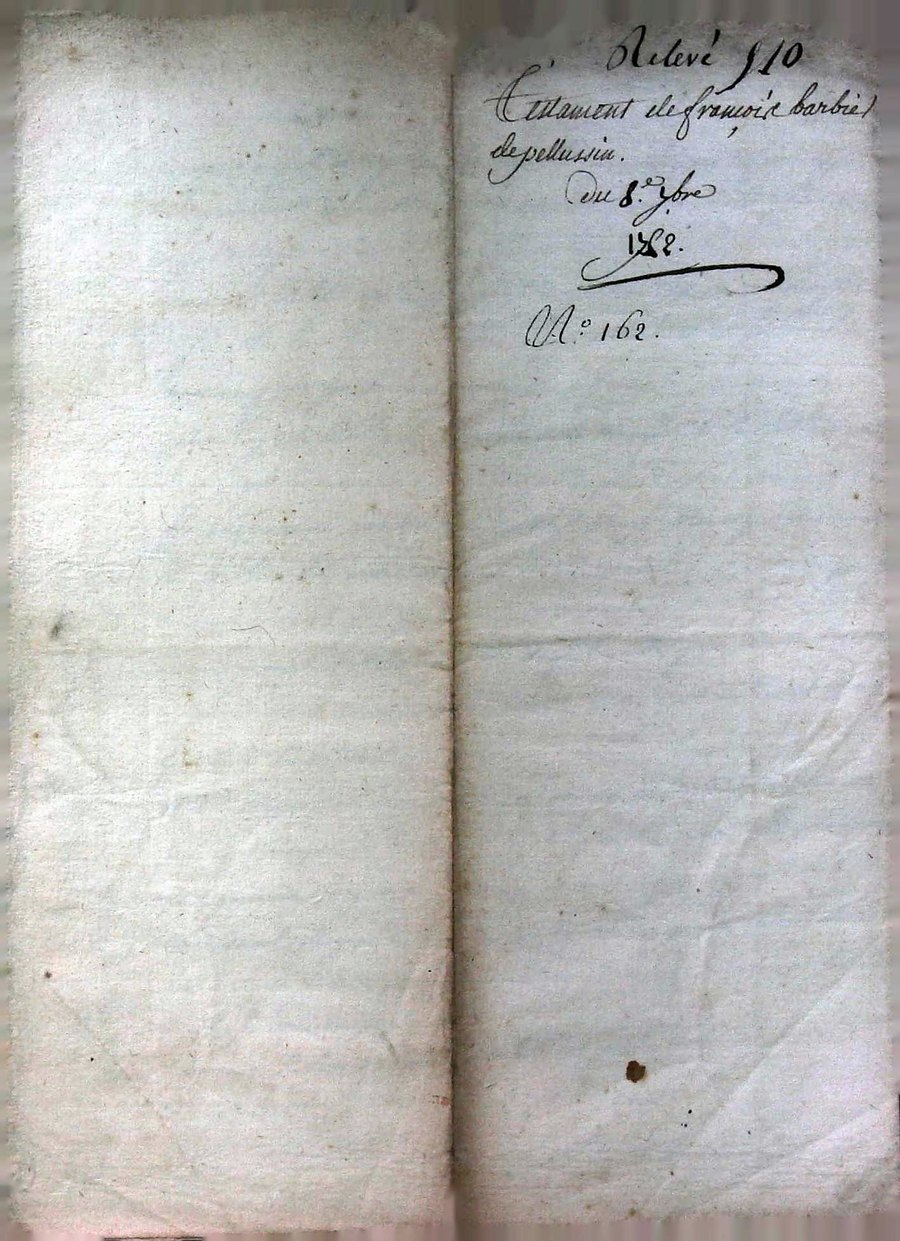 Relevé 510
Testament de françois barbier
de pellussin.
du 8.e 7bre
1752.
N.o 162.